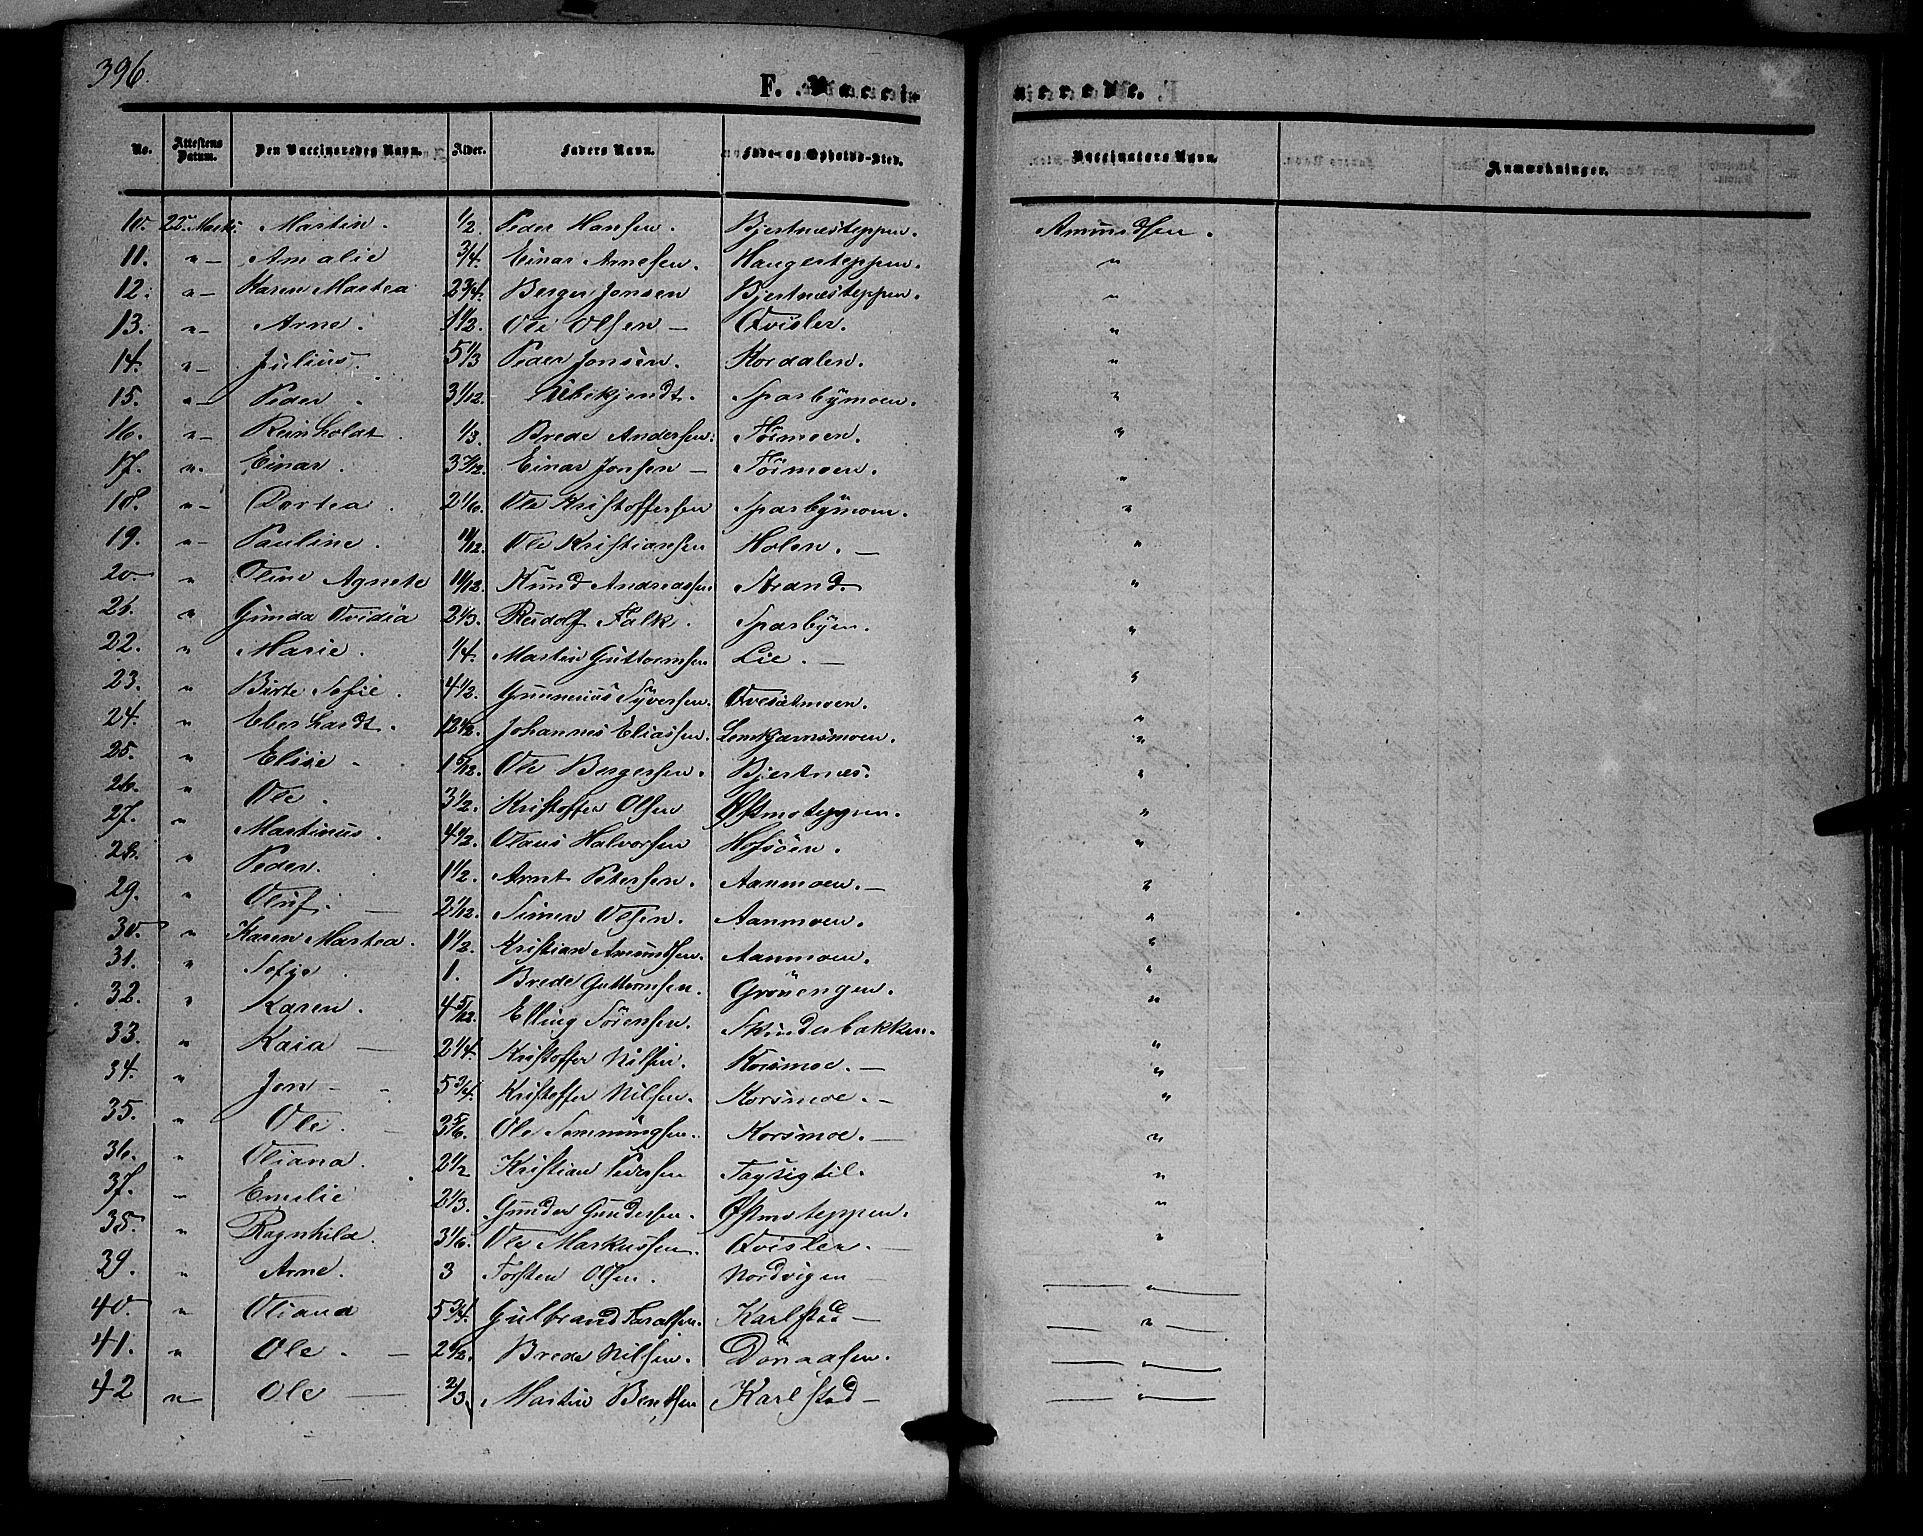 396.
F. Vaccinerede.
No. Attestens Datum. Den Vaccineredes Navn. Alder. Faders Navn. Føde- og Opholds-Sted. Vaccinateurs Navn. Anmærkninger.
10. 22 Marts. Martin. 1/2 Peder Hansen. Bjertnæsteppen. Amundsen.
11. " – Amalie 3/4. Einar Arnesen. Haugerteppen. "
12. " – Karen Martea 2 3/4. Berger Jonsen Bjertnæsteppen. "
13. " – Arne. 1 1/2. Ole Olsen – Qvisler. "
14. " – Julius. 5 1/3 Peder Jonsen. Kordalen. "
15. " – Peder. 3 1/12. Ubekjendt. Sparbymoen. "
16. " – Reinholdt. 1/3. Brede Andersen. Formoen. "
17. " . Einar. 3 5/12. Einar Jonsen – Formoen. "
18. " – Dortea. 2 1/6. Ole Kristoffersen Sparbymoen. "
19. " – Pauline. 11/12. Ole Kristiansen Holen. – "
20. " Oline Agnete 11/12. Knud Andreassen. Strand. "
21. " Gunda Ovidia 2 1/3. Rudolf Falk. Sparbyen. "
22. " Marie. 1/4. Martin Guttormsen Lie. – "
23. " Birte Sofie. 4 1/2. Gunnerius Syversen. Qvesetmoen. "
24. " Eberhardt. 12 1/2. Johannes Eliassen. "
25. " Elise – 1 5/12. Ole Bergersen. Bjertnæs. "
26. " Ole. 3 1/2. Kristoffer Olsen Østmoteppen. "
27. " Martinus. 4 1/2. Olaus Halvorsen Hofsøen. "
28. " Peder. 1 1/2. Arnt Petersen. Aanmoen. – "
29. " Oluf. – 2 1/12. Simen Olsen. Aanmoen. "
30. " Karen Martea. 1 1/2. Kristian Amundsen. Aanmoen. "
31. " Sofie 1. Brede Guttormsen. Grøvengen. "
32. " Karen. 4 5/12. Elling Sørensen. "
33. " Kaia – 2 1/4. Kristoffer Nilsen. Korsmoe. – "
34. " Jon – 5 3/4. Kristoffer Nilsen. Korsmoe. – "
35. " Ole. – 3 5/6. Ole Semmingsen. Korsmoe. – "
36. " Oliana. 2 1/2 Kristian Pedersen "
37. " Emelie 2 1/3. Gunder Gundersen. Østmoteppen. "
38. " Ragnhild. 3 1/6. Ole Markussen. Qvisler. – "
39. " Arne. 3 Torsten Olsen. Nordvigen – "
40. " Oliana 5 3/4. Gulbrand Karlstad – "
41. " Ole. – 2 1/2. Brede Nilsen. Dønaasen. "
42 " – Ole – 2/3. Martin Bentsen Karlstad – "